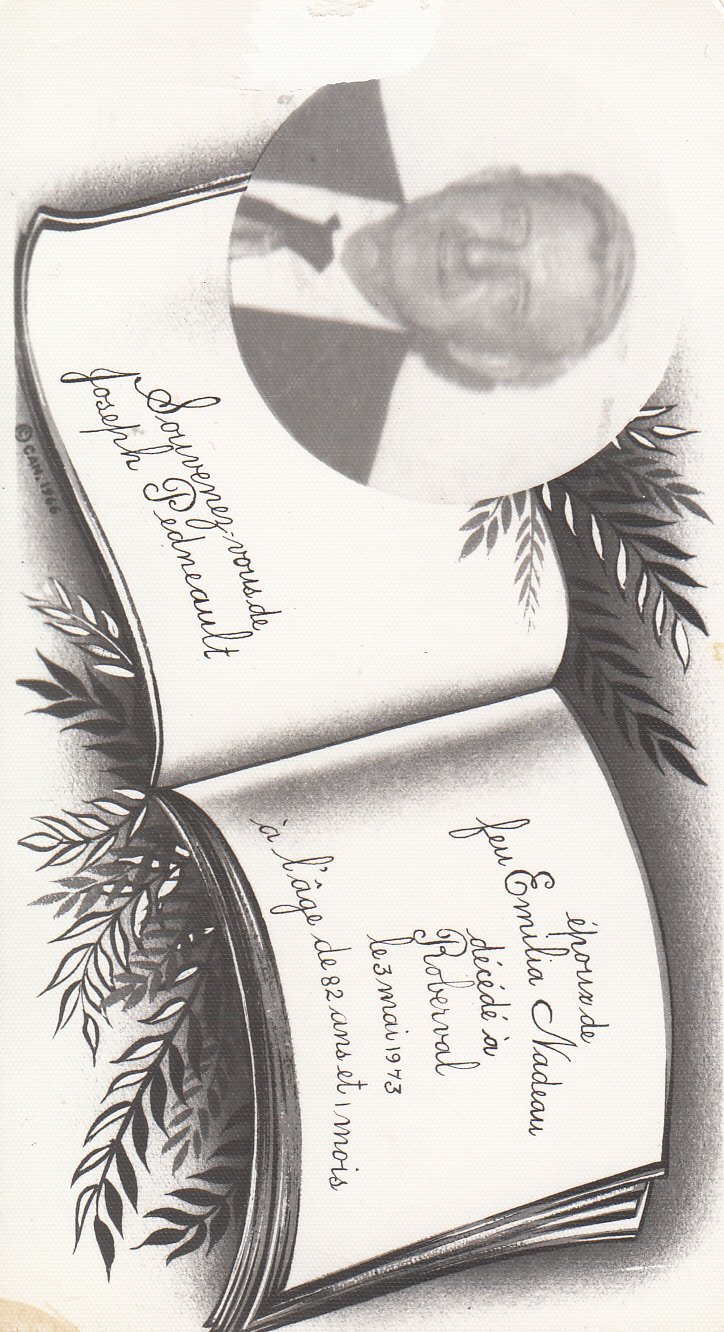 Souvenez-vous de
Joseph Pedneault
époux de
feu Emilia Nadeau
décédé à
Roberval
le 3 mai 1973
à l'âge de 82 ans et 1 mois
© CAM. 1966